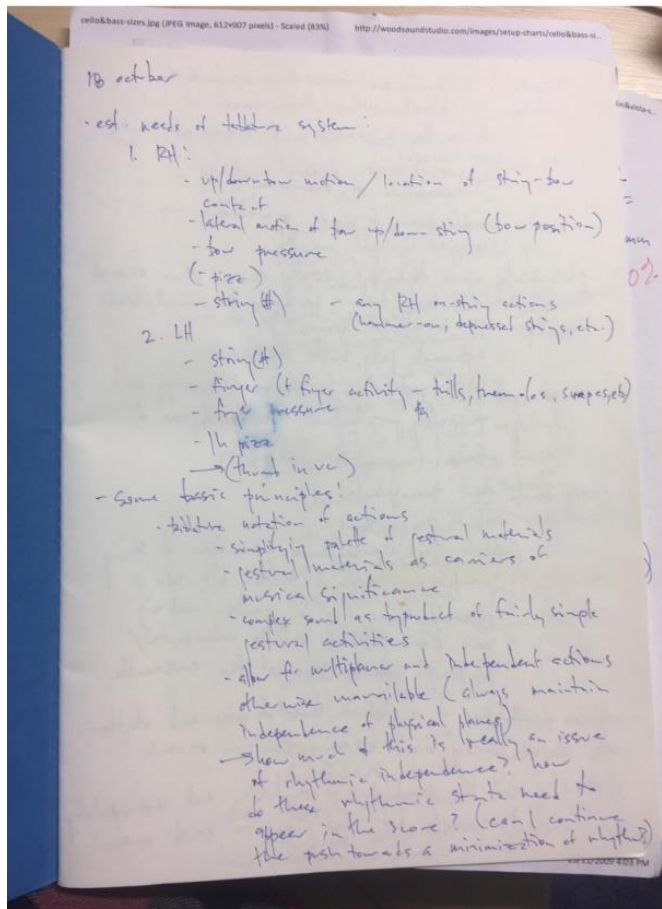 cello&bass-sizes.jpg (JPEG Image, 612×907 pixels) - Scaled (83%) http://woodsoundstudio.com/images/setup-charts/cello&bass-si...
18 october
- est. needs of tablature system:
1. RH:
- up/downbow motion / location of string-bow
contact
- lateral motion of bow up/down string (bow position)
- bow pressure
(- pizz)
- string (#) - any RH on-string actions
(hammer-on, depressed strings, etc.)
2. LH
- string (#)
- finger (+ finger activity - trills, tremolos, swipes, etc)
- finger pressure
- lh pizz
→ (thumb in vc)
- some basic principles:
- tablature notation of actions
- simplifying palette of gestural materials
- gestural materials as carriers of
musical significance
- complex sound as byproduct of fairly simple
gestural activities
- allow for multiplanar and independent actions
otherwise unavailable (always maintain
independence of physical planes)
→ how much of this is really an issue
of rhythmic independence? how
do these rhythmic strata need to
appear in the score? (can I continue
the push towards a minimization of rhythm?)
lin&viola-s...
mm
02
/2009 4:03 PM